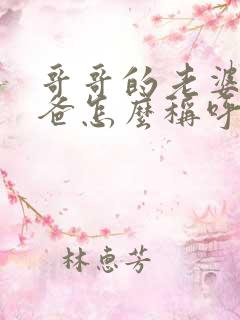 哥哥的老婆
爸怎麼稱呼
林惠芳